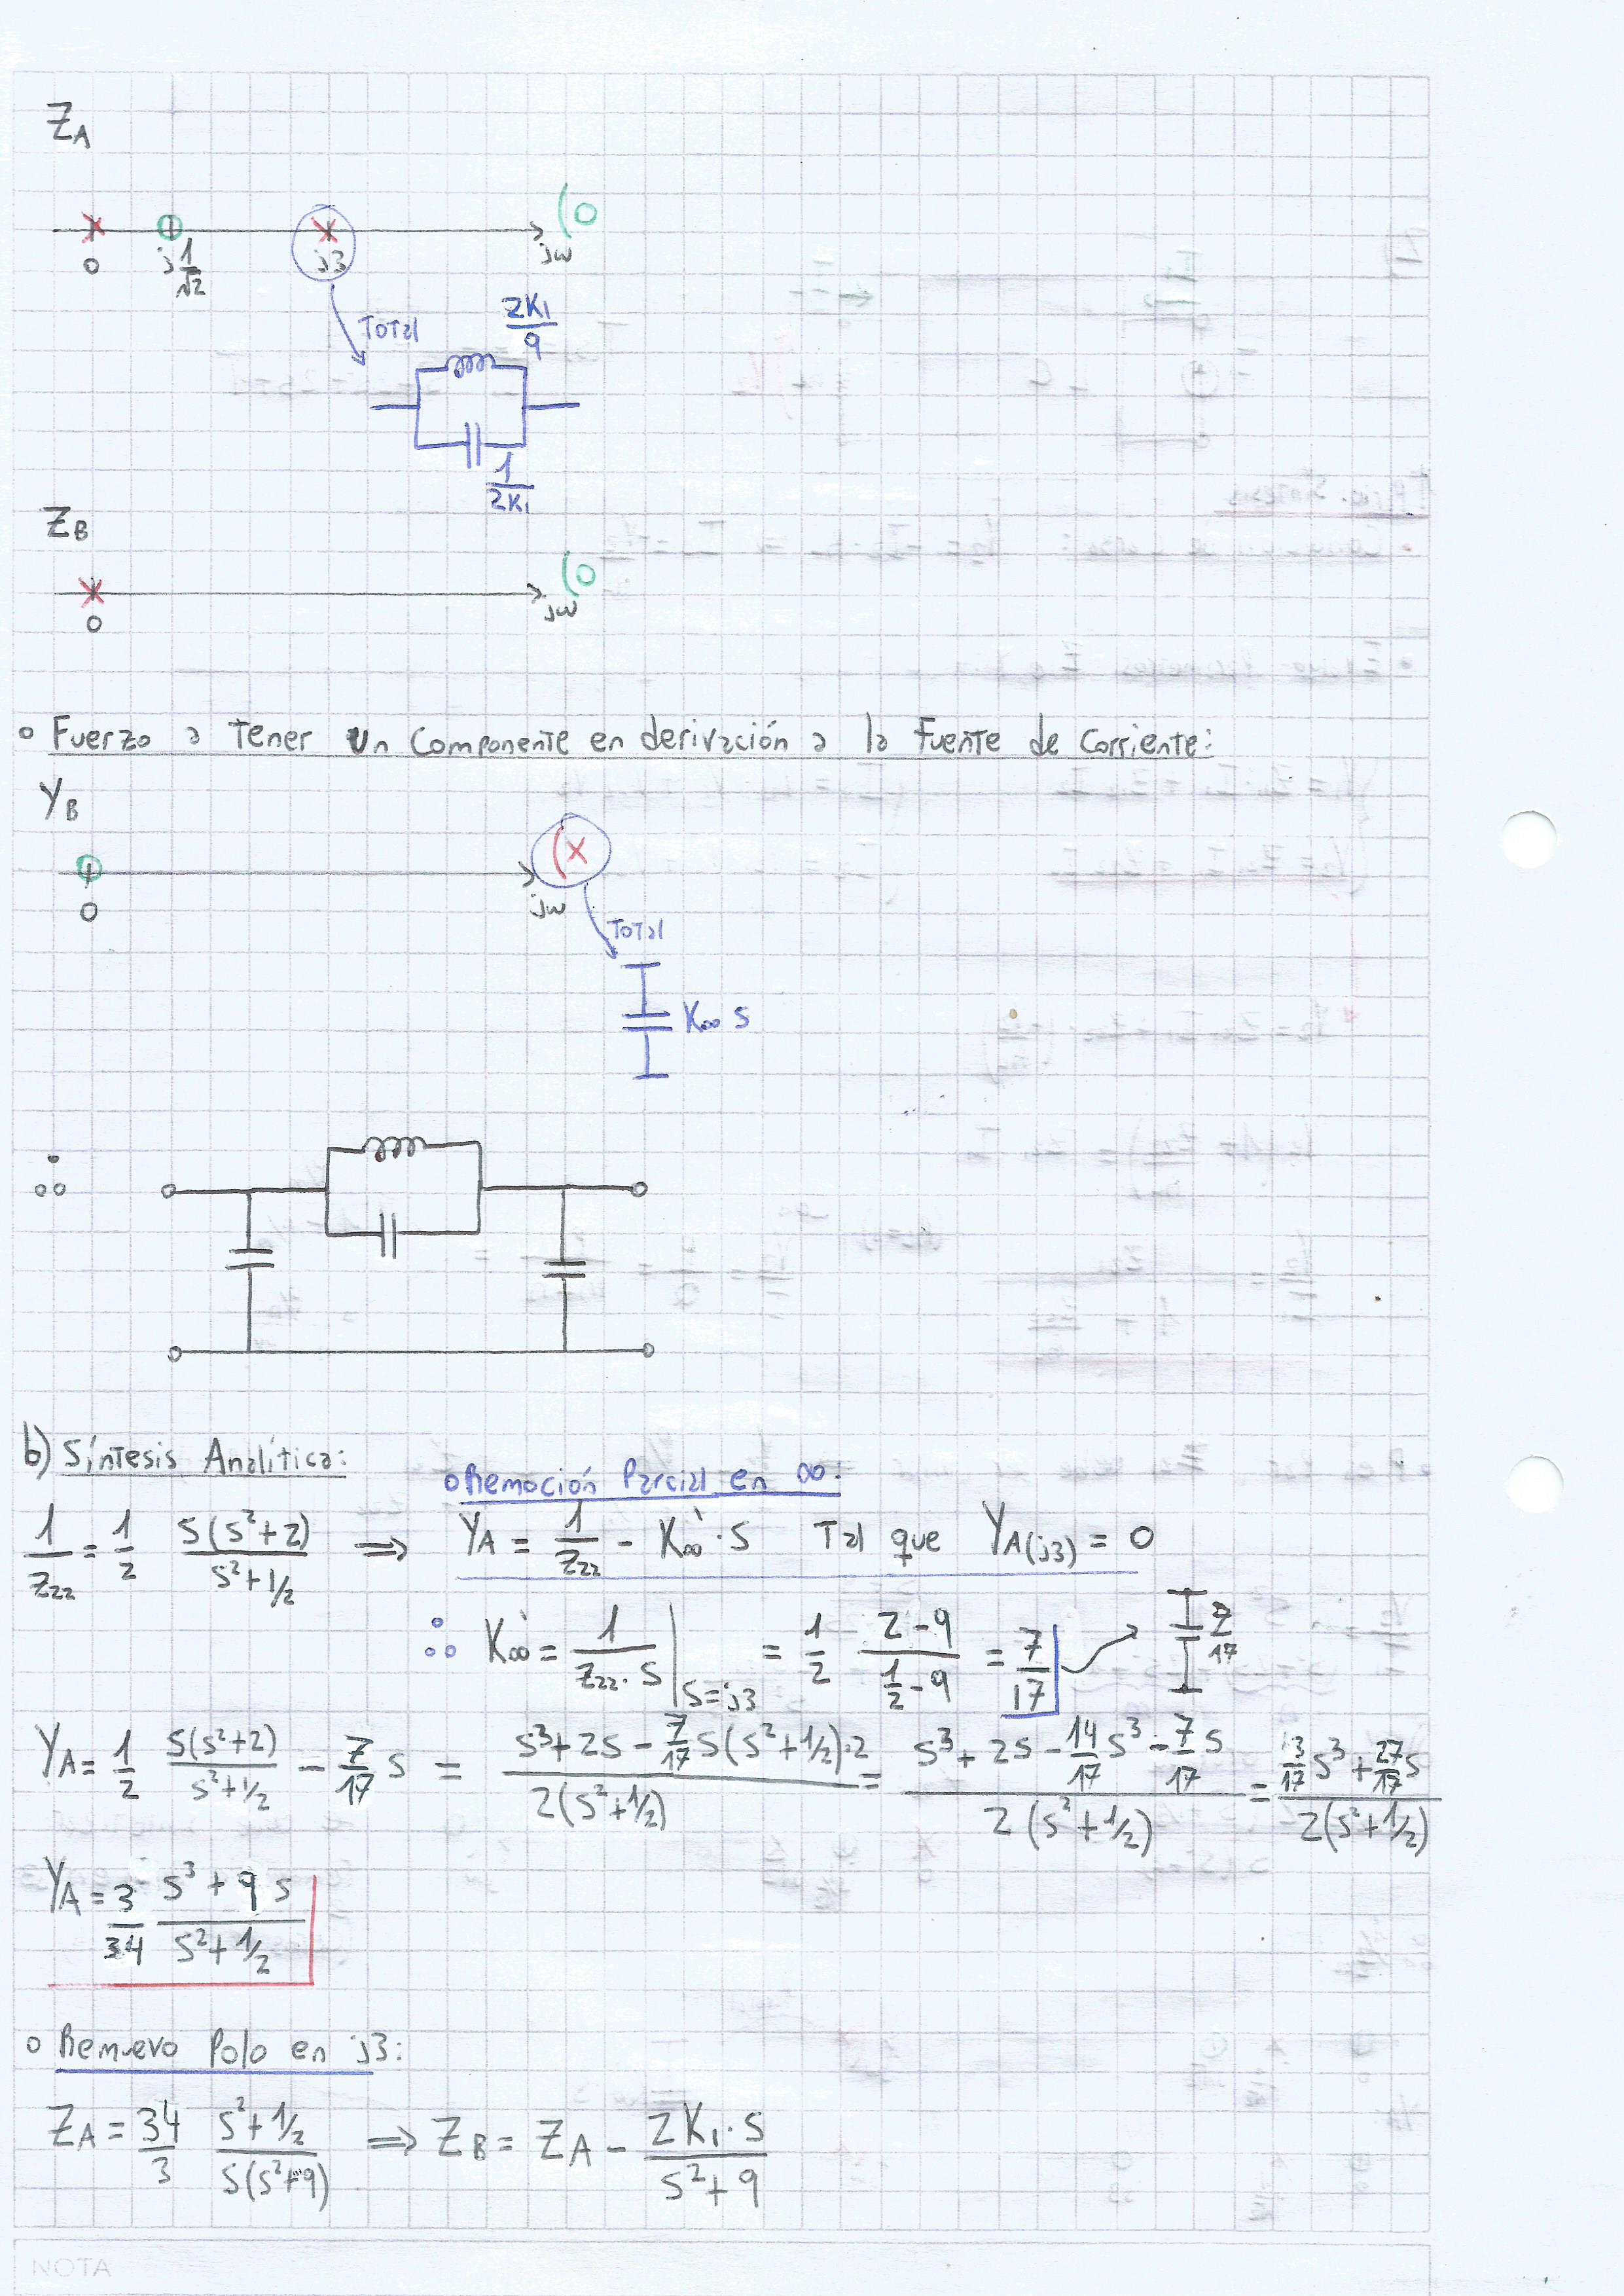 Z_A
(0
0 j1/√2 j3 jω
Total
2K₁/9
1/2K₁
Z_B
(0
0 jω
° Fuerzo a tener un componente en derivación a la fuente de corriente:
Y_B
(x
0 jω
Total
K∞ s
∴
b) Síntesis Analítica:
° Remoción Parcial en ∞:
1/Z₂₂ = 1/2 s(s²+2)/(s²+1/2) ⇒ Y_A = 1/Z₂₂ - K∞' · s Tal que Y_A(j3) = 0
∴ K∞' = 1/(Z₂₂ · s) |s=j3 = 1/2 (2-9)/(1/2-9) = 7/17 7/17
Y_A = 1/2 s(s²+2)/(s²+1/2) - 7/17 s = (s³+2s - 7/17 s(s²+1/2)·2)/(2(s²+1/2)) = (s³+2s - 14/17 s³ - 7/17 s)/(2(s²+1/2)) = (3/17 s³ + 27/17 s)/(2(s²+1/2))
Y_A = 3/34 (s³+9s)/(s²+1/2)
° Remuevo Polo en j3:
Z_A = 34/3 (s²+1/2)/(s(s²+9)) ⇒ Z_B = Z_A - 2K₁·s/(s²+9)
NOTA